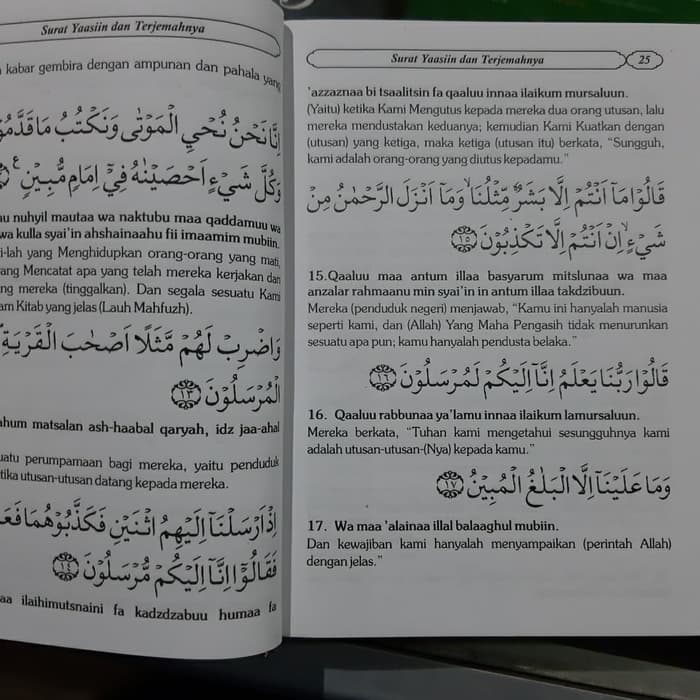 Surat Yaasiin dan Terjemahnya
kabar gembira dengan ampunan dan pahala yang
اِنَّا نَحْنُ نُحْيِ الْمَوْتٰى وَنَكْتُبُ مَا قَدَّمُوْا
وَكُلَّ شَيْءٍ اَحْصَيْنٰهُ فِيْٓ اِمَامٍ مُّبِيْنٍ
nuhyil mautaa wa naktubu maa qaddamuu wa
wa kulla syai'in ahshainaahu fii imaamim mubiin.
-lah yang Menghidupkan orang-orang yang mati,
ang Mencatat apa yang telah mereka kerjakan dan
ng mereka (tinggalkan). Dan segala sesuatu Kami
am Kitab yang jelas (Lauh Mahfuzh).
وَاضْرِبْ لَهُمْ مَّثَلًا اَصْحٰبَ الْقَرْيَةِ
الْمُرْسَلُوْنَ ﴿١٣﴾
ahum matsalan ash-haabal qaryah, idz jaa-ahal
uatu perumpamaan bagi mereka, yaitu penduduk
tika utusan-utusan datang kepada mereka.
اِذْ اَرْسَلْنَآ اِلَيْهِمُ اثْنَيْنِ فَكَذَّبُوْهُمَا فَعَ
فَقَالُوْٓا اِنَّآ اِلَيْكُمْ مُّرْسَلُوْنَ ﴿١٤﴾
aa ilaihimutsnaini fa kadzdzabuu humaa fa
Surat Yaasiin dan Terjemahnya 25
'azzaznaa bi tsaalitsin fa qaaluu innaa ilaikum mursaluun.
(Yaitu) ketika Kami Mengutus kepada mereka dua orang utusan, lalu
mereka mendustakan keduanya; kemudian Kami Kuatkan dengan
(utusan) yang ketiga, maka ketiga (utusan itu) berkata, “Sungguh,
kami adalah orang-orang yang diutus kepadamu.”
قَالُوْا مَآ اَنْتُمْ اِلَّا بَشَرٌ مِّثْلُنَاۙ وَمَآ اَنْزَلَ الرَّحْمٰنُ مِنْ
شَيْءٍۙ اِنْ اَنْتُمْ اِلَّا تَكْذِبُوْنَ ﴿١٥﴾
15.Qaaluu maa antum illaa basyarum mitslunaa wa maa
anzalar rahmaanu min syai'in in antum illaa takdzibuun.
Mereka (penduduk negeri) menjawab, “Kamu ini hanyalah manusia
seperti kami, dan (Allah) Yang Maha Pengasih tidak menurunkan
sesuatu apa pun; kamu hanyalah pendusta belaka.”
قَالُوْا رَبُّنَا يَعْلَمُ اِنَّآ اِلَيْكُمْ لَمُرْسَلُوْنَ ﴿١٦﴾
16. Qaaluu rabbunaa ya'lamu innaa ilaikum lamursaluun.
Mereka berkata, “Tuhan kami mengetahui sesungguhnya kami
adalah utusan-utusan-(Nya) kepada kamu.”
وَمَا عَلَيْنَآ اِلَّا الْبَلٰغُ الْمُبِيْنُ ﴿١٧﴾
17. Wa maa 'alainaa illal balaaghul mubiin.
Dan kewajiban kami hanyalah menyampaikan (perintah Allah)
dengan jelas.”